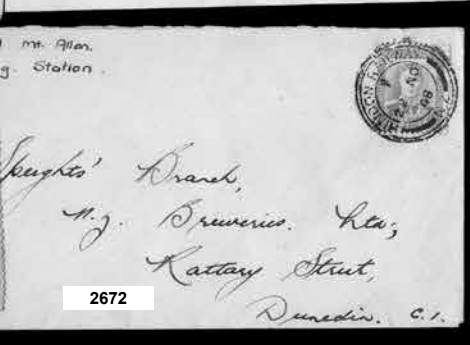 Mt. Allan.
g. Station.
HINDON RAILWAY
N.Z.
Speights' Branch,
N.Z. Breweries. Ltd;
Rattary Street,
Dunedin. C.1.
2672